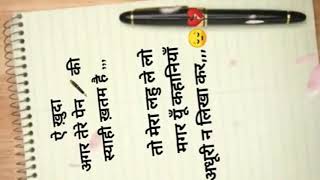 ऐ ख़ुदा
अगर तेरे पेन🖊️की
स्याही ख़तम है ,,,
तो मेरा लहु ले लो
मगर यूँ कहानियाँ
अधूरी न लिखा कर,,,😔💔